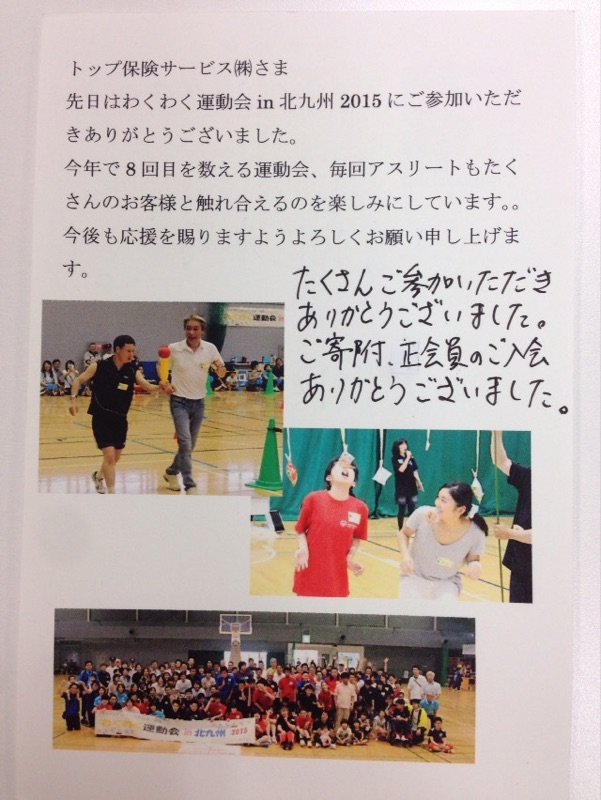 トップ保険サービス㈱さま
先日はわくわく運動会 in 北九州 2015 にご参加いただ
きありがとうございました。
今年で 8 回目を数える運動会、毎回アスリートもたく
さんのお客様と触れ合えるのを楽しみにしています。。
今後も応援を賜りますようよろしくお願い申し上げま
す。
たくさんご参加いただき
ありがとうございました。
ご寄附、正会員のご入会
ありがとうございました。
運動会
わくわく 運動会 in 北九州 2015